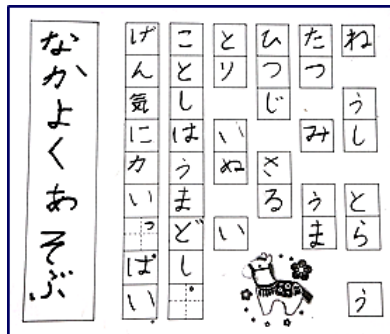 ね うし とら う
たつ み うま
ひつじ さる
とり いぬ い
ことしはうまどし。
げん気に力いっぱい
なかよくあそぶ